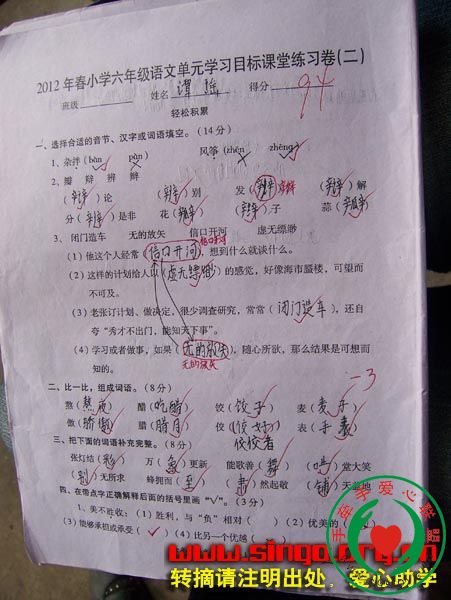 2012年春小学六年级语文单元学习目标课堂练习卷(二)
班级 姓名 谭 得分 94
轻松积累
一、选择合适的音节、汉字或词语填空。(14分)
1、杂拌(bàn pàn) 风筝(zhēn zhēng)
2、瓣 辩 辨 辫
(辩)论 (辨)别 发( )解
分(辨)是非 花(瓣) (辫)子 蒜( )
3、闭门造车 无的放矢 信口开河 虚无缥缈
(1)他这个人经常(信口开河),想到什么就谈什么。
信口开河
(2)这样的计划给人以(虚无缥缈)的感觉,好像海市蜃楼,可望而
不可及。
(3)老张订计划、做决定,很少调查研究,常常(闭门造车),还自
夸“秀才不出门,能知天下事”。
(4)学习或者做事,如果(无的放矢),随心所欲,那么结果是可想而
知的。
无的放矢
-3
二、比一比,组成词语。(8分)
熬(熬夜) 醋(吃醋) 饺(饺子) 麦(麦子)
傲(骄傲) 腊(腊月) 佼( ) 表(手表)
佼佼者
三、把下面的词语补充完整。(8分)
张灯结(彩) 万(象)更新 能歌善(舞) (哄)堂大笑
(别)无所求 蜂拥而(至) (肃)然起敬 (铺)天盖地
四、在带点字正确解释后面的括号里画“√”。(3分)
1、美不胜收:(1)胜利,与“负”相对( ) (2)优美的(
(3)能够承担或承受(√) (4)比另一个优越(
www.singo.org.cn
转摘请注明出处,爱心助学
手牵手爱心学盟